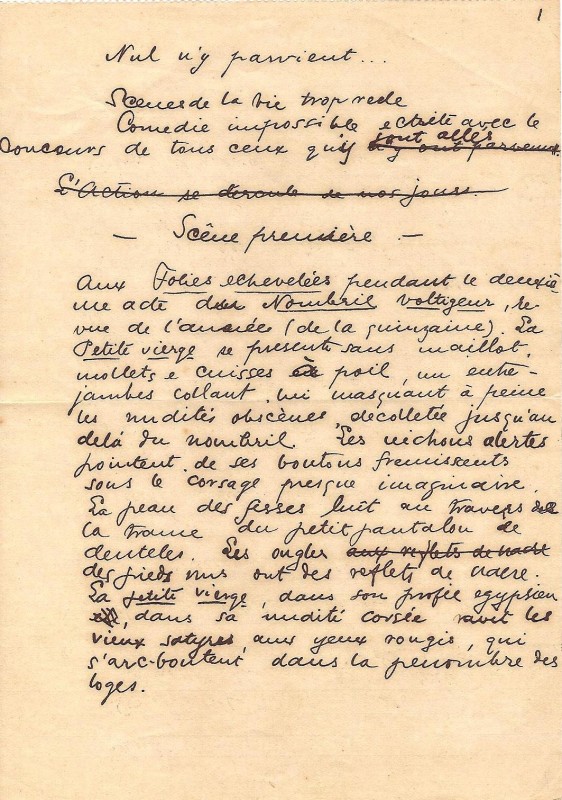 1
Nul n'y parvient...
Scenes de la vie trop reele
Comedie impossible ecrite avec le
sont allés
Concours de tous ceux qui y ont parvenus.
L'Action se deroule de nos jours.
— Scêne première —
Aux Folies echevelées pendant le deuxiè
me acte du Nombril Voltigeur, re
vue de l'année (de la quinzaine). La
Petite vierge se presente sans maillot,
mollets e cuisses à poil, un entre-
jambes collant lui masquant à peine
les nudités obscènes, decolletée jusqu'au
delà du nombril. Les nichons alertes
pointent de ses boutons fremissents
sous le corsage presque imaginaire.
La peau des fesses luit au travers de
la trame du petit pantalon de
denteles. Les ongles aux reflets de nacre
des pieds nus ont des reflets de nacre.
La petite vierge, dans son profil egyptien
, dans sa nudité corsée ravit les
vieux satyres, aux yeux rougis, qui
s'arc-boutent dans la penombre des
loges.